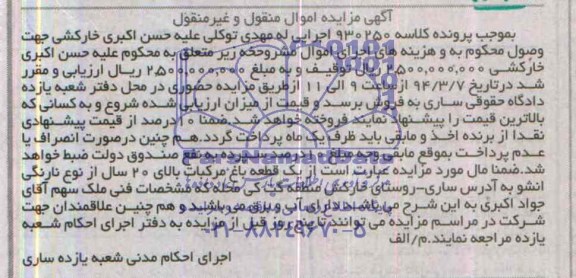 آگهی مزایده اموال منقول و غیرمنقول
بموجب پرونده کلاسه ۹۳۰۲۵۰ اجرایی له مهدی توکلی علیه حسن اکبری خارکشی جهت
وصول محکوم به و هزینه های اجرای اموال مشروحه زیر متعلق به محکوم علیه حسن اکبری
خارکشی ۲,۵۰۰,۰۰۰,۰۰۰ ریال توقیف و به مبلغ ۲,۵۰۰,۰۰۰,۰۰۰ ریال ارزیابی و مقرر
شد درتاریخ ۹۴/۳/۷ ازساعت ۹ الی ۱۱ ازطریق مزایده حضوری در محل دفتر شعبه یازده
دادگاه حقوقی ساری به فروش برسد و قیمت از میزان ارزیابی شده شروع و به کسانی که
بالاترین قیمت را پیشنهاد نمایند فروخته خواهد شد.ضمنا ۱۰درصد از قیمت پیشنهادی
نقدا از برنده اخذ و مابقی باید ظرف یک ماه پرداخت گردد.هم چنین درصورت انصراف یا
عدم پرداخت بموقع مابقی وجه مبلغ ۱۰درصد سپرده به نفع صندوق دولت ضبط خواهد
شد.ضمنا مال مورد مزایده عبارت است از یک قطعه باغ مرکبات بالای ۲۰ سال از نوع نارنگی
انشو به آدرس ساری-روستای خارکش منطقه کتی محله که مشخصات فنی ملک سهم آقای
جواد اکبری به این شرح می باشد.دارای آب و برق می باشد و هم چنین علاقمندان جهت
شرکت در مراسم مزایده می توانند تا پنج روز قبل از مزایده به دفتر اجرای احکام شعبه
یازده مراجعه نمایند.م/الف
اجرای احکام مدنی شعبه یازده ساری
۰۲۱-۸۸۳۴۹۶۷۰-۵